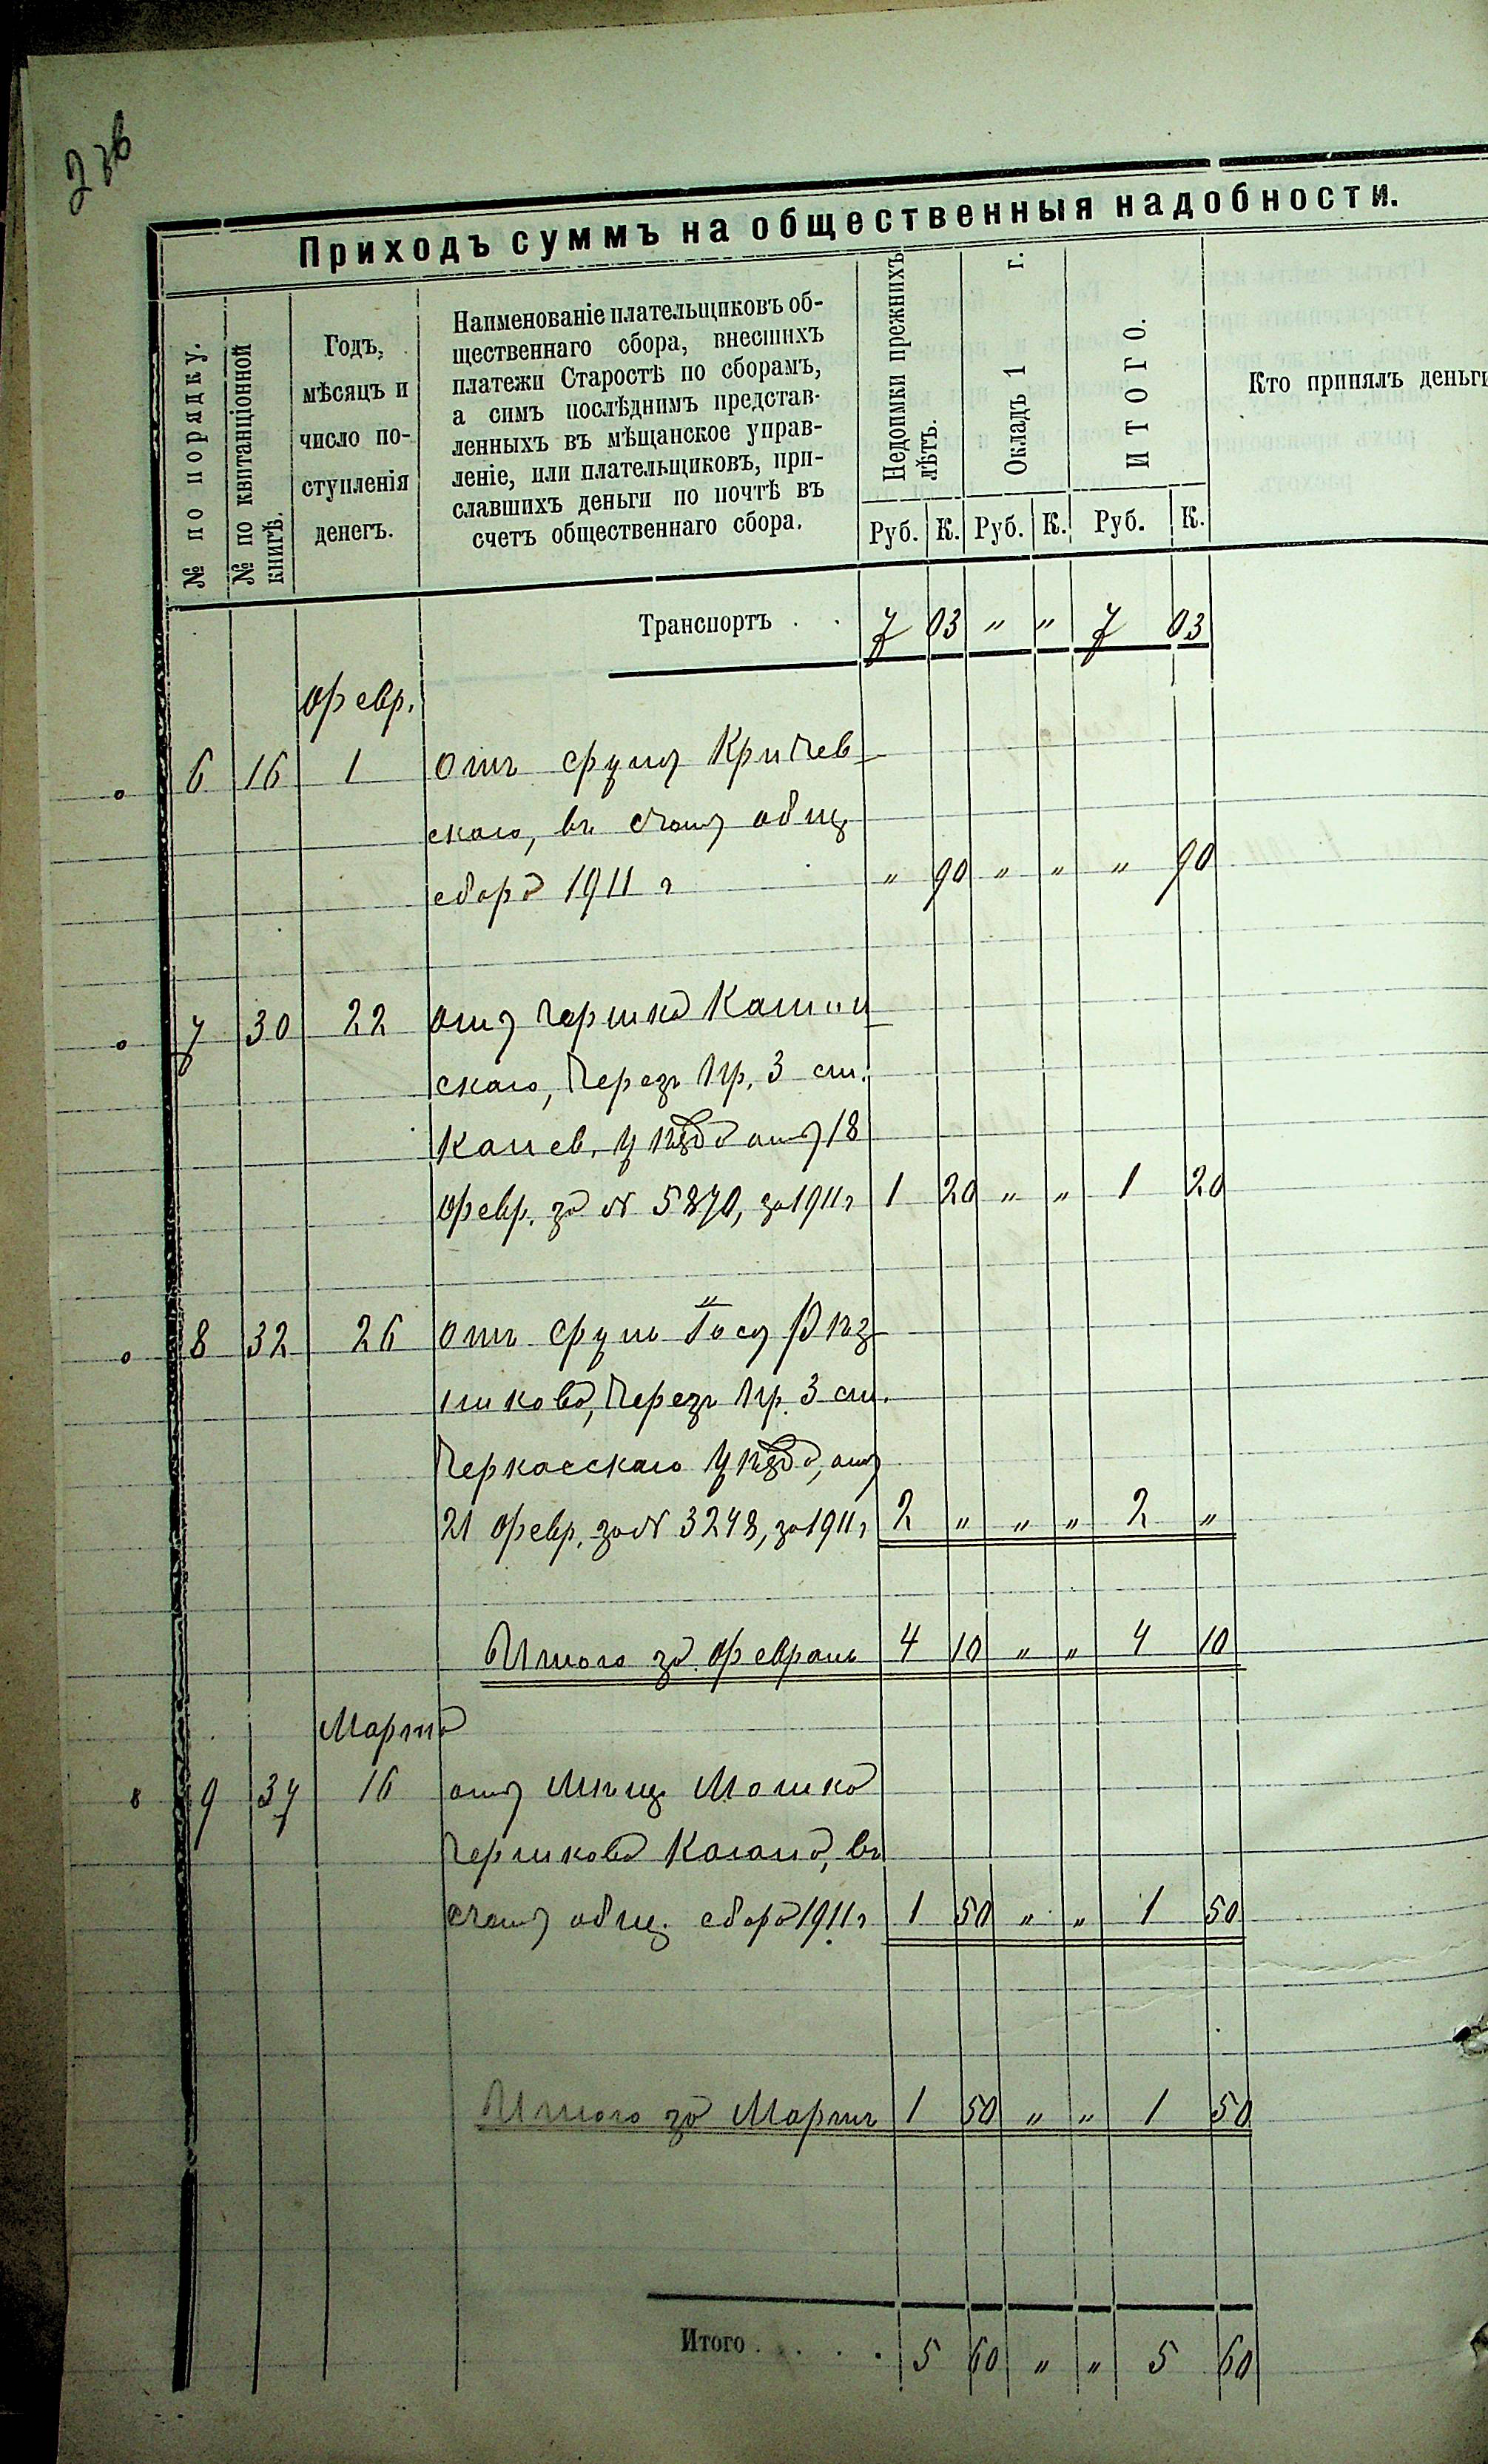 236
Приходъ суммъ на общественныя надобности.
№ по порядку.
№ по квитанціонной книгѣ.
Годъ,
мѣсяцъ и
число по-
ступленія
денегъ.
Наименованіе плательщиковъ об-
щественнаго сбора, внесшихъ
платежи Старостѣ по сборамъ,
а симъ послѣднимъ представ-
ленныхъ въ мѣщанское управ-
леніе, или плательщиковъ, при-
славшихъ деньги по почтѣ въ
счетъ общественнаго сбора.
Недоимки прежнихъ лѣтъ.
Окладъ 1 г.
ИТОГО.
Кто принялъ деньги
Руб. К. Руб. К. Руб. К.
Транспортъ . . 7 03 " " 7 03
Февр.
6 16 1 отъ Сруля Кричев-
скаго, въ счетъ общ.
сбора 1911 г " 90 " " " 90
7 30 22 отъ Гершка Каміон-
скаго, черезъ Пр. 3 ст.
Канев. уѣзда отъ 18
Февр. за № 5870, за 1911 г 1 20 " " 1 20
8 32 26 отъ Сруль
черезъ Пр. 3 ст.
Черкасскаго уѣзда, отъ
21 Февр. за № 3248, за 1911 г 2 " " " 2 "
Итого за Февраль 4 10 " " 4 10
Марта
9 37 16 отъ Мѣщ. Мошка
Гершкова Кагана, въ
счетъ общ. сбора 1911 г 1 50 " " 1 50
Итого за Мартъ 1 50 " " 1 50
Итого . . . . 5 60 " " 5 60